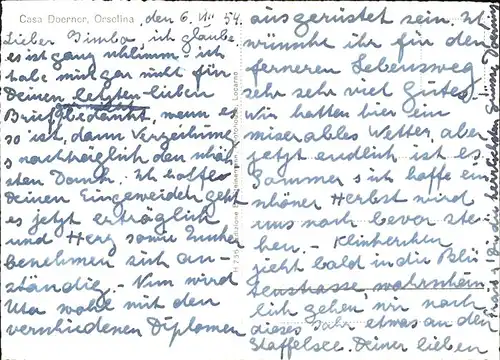 Casa Doerner, Orselina, den 6. VII 54.
Lieber Bimbo ich glaube
es ist ganz schlimm - ich
habe mich gar nicht für
Deinen letzten lieben
Brief bedankt, wenn es
so ist, dann Verzeihung
nachträglich den schön-
sten Dank. Ich hoffe
Deinen Eingeweiden geht
es jetzt erträglich
und Herz sowie
benehmen sich an-
ständig. - Nun wird
Uta wohl mit den
verschiedenen Diplomen
ausgerüstet sein. Ich
wünsche ihr für den
ferneren Lebensweg
sehr sehr viel Gutes. -
Wir hatten hier ein
miserables Wetter, aber
jetzt endlich ist es
Sommer ich hoffe ein
schöner Herbst wird
uns noch bevor ste-
hen. -
zieht bald in die Blü-
tenstrasse, wahrschein-
lich gehen wir noch
dieses Jahr etwas an den
Staffelsee. Deiner lieben
H 735